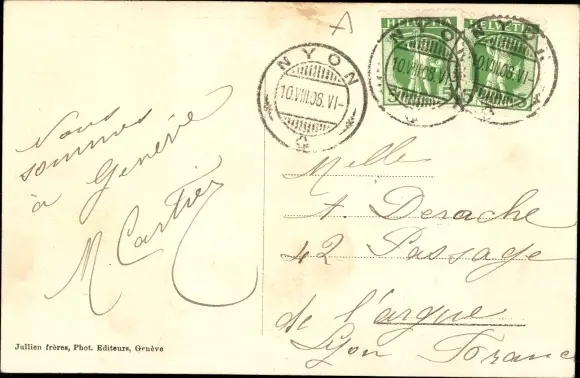 A
HELVETIA
HELVETIA
NYON
10.VIII.08.VI-
NYON
10.VIII.08.VI-
NYON
10.VIII.08.VI-
5
5
5
Nous
sommes
à Genève
M Cartier
Melle
A. Derache
42 Passage
de l'argue
Lyon France
Jullien frères, Phot. Editeurs, Genève